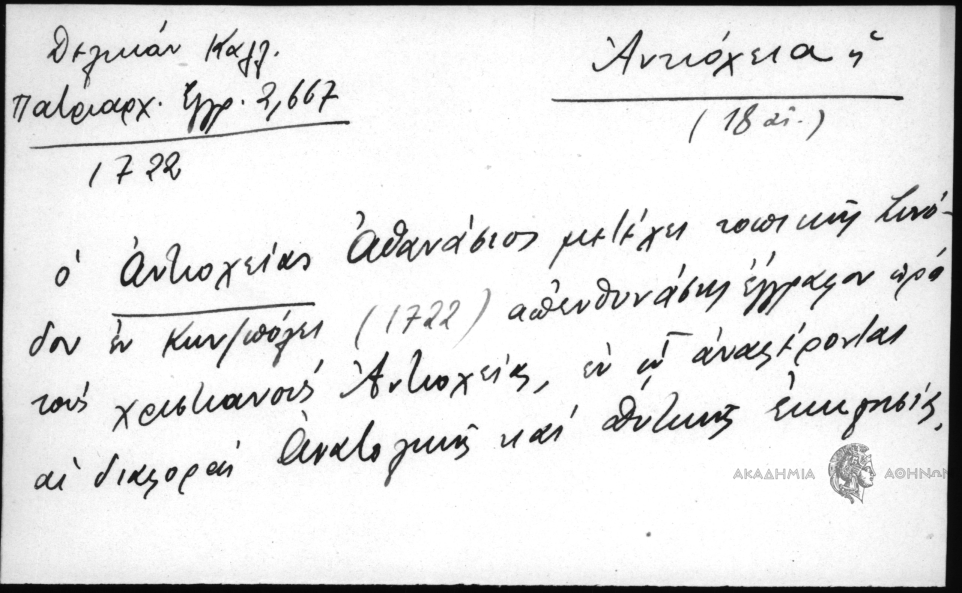 Δελικάν Καλλ.
Πατριαρχ. Ἔγγρ. 2,667
1722
Ἀντιόχεια ἡ
(18 αἰ.)
ὁ Ἀντιοχείας Ἀθανάσιος μετέχει τοπικῆς Συνό-
δου ἐν Κων/πόλει (1722) ἀπευθυνάσης ἔγγραφον πρὸ
τοὺς χριστιανοὺς Ἀντιοχείας, ἐν ᾧ ἀναφέρονται
αἱ διαφοραὶ Ἀνατολικῆς καὶ Δυτικῆς ἐκκλησίας.
ΑΚΑΔΗΜΙΑ ΑΘΗΝΩΝ